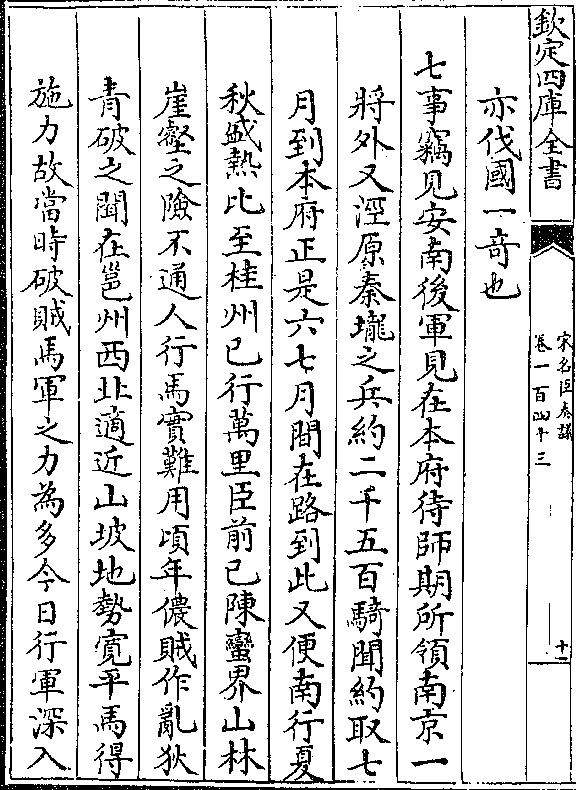 欽定四庫全書
宋名臣奏議
卷一百四十三
十一
亦伐國一竒也
七事竊見安南後軍見在本府待師期所領南京一
將外又涇原秦壠之兵約二千五百騎聞約取七
月到本府正是六七月間在路到此又便南行夏
秋盛熱比至桂州已行萬里臣前已陳蠻界山林
崖壑之險不通人行馬實難用頃年儂賊作亂狄
青破之聞在邕州西北適近山坡地勢寛平馬得
施力故當時破賊馬軍之力為多今日行軍深入